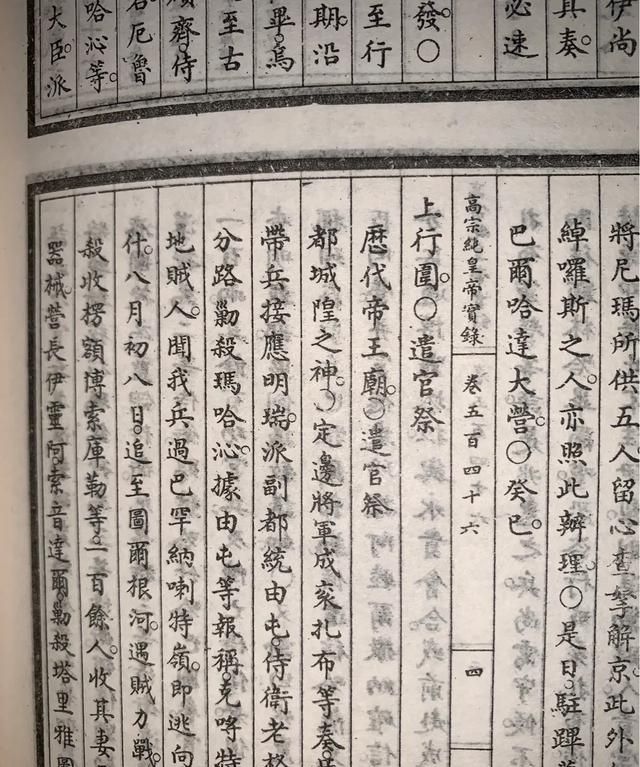 伊尚
其奏
必速
發〇
至行
期沿
畢烏
至古
齊侍
厄魯
哈沁等
大臣派
將尼瑪所供五人留心查拏解京此外
綽囉斯之人亦照此辦理〇是日駐蹕
巴爾哈達大營〇癸巳
高宗純皇帝實錄 卷五百四十六 四
上行圍〇遣官祭
歷代帝王廟〇遣官祭
都城隍之神〇定邊將軍成袞扎布等奏
帶兵接應明瑞派副都統由屯侍衛老格
分路勦殺瑪哈沁據由屯等報稱克咯特
地賊人聞我兵過巴罕納喇特嶺即逃向
什八月初八日追至圖爾根河遇賊力戰
殺收楞額博索庫勒等一百餘人收其妻
器械營長伊靈阿索音達爾勦殺塔里雅圖